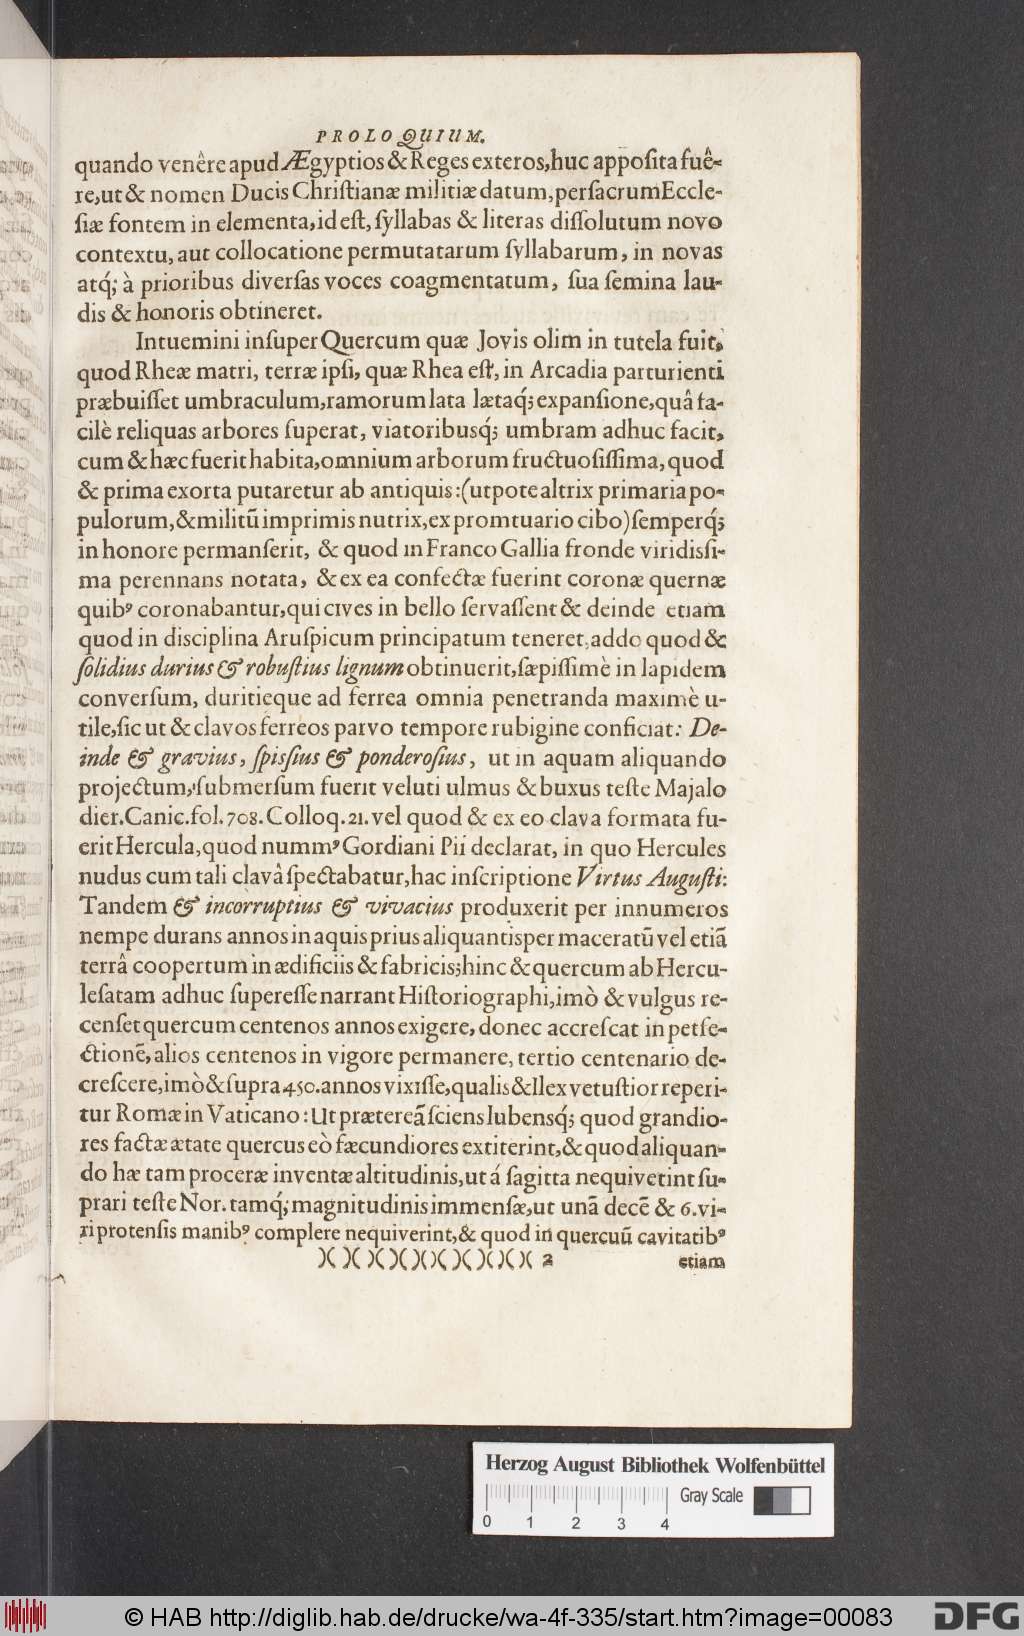 PROLOQUIUM.
quando venêre apud Ægyptios & Reges exteros, huc apposita fuê-
re, ut & nomen Ducis Christianæ militiæ datum, per sacrum Eccle-
siæ fontem in elementa, id est, syllabas & literas dissolutum novo
contextu, aut collocatione permutatarum syllabarum, in novas
atq́; à prioribus diversas voces coagmentatum, sua semina lau-
dis & honoris obtineret.
Intuemini insuper Quercum quæ Jovis olim in tutela fuit,
quod Rheæ matri, terræ ipsi, quæ Rhea est, in Arcadia parturienti
præbuisset umbraculum, ramorum lata lætaq́; expansione, quâ fa-
cilè reliquas arbores superat, viatoribusq́; umbram adhuc facit,
cum & hæc fuerit habita, omnium arborum fructuosissima, quod
& prima exorta putaretur ab antiquis: (utpote altrix primaria po-
pulorum, & militũ imprimis nutrix, ex promtuario cibo) semperq́;
in honore permanserit, & quod in Franco Gallia fronde viridissi-
ma perennans notata, & ex ea confectæ fuerint coronæ quernæ
quibꝰ coronabantur, qui cives in bello servassent & deinde etiam
quod in disciplina Aruspicum principatum teneret, addo quod &
solidius durius & robustius lignum obtinuerit, sæpissimè in lapidem
conversum, duritieque ad ferrea omnia penetranda maximè u-
tile, sic ut & clavos ferreos parvo tempore rubigine conficiat: De-
inde & gravius, spissius & ponderosius, ut in aquam aliquando
projectum, submersum fuerit veluti ulmus & buxus teste Majalo
dier. Canic. fol. 708. Colloq. 21. vel quod & ex eo clava formata fu-
erit Hercula, quod nummꝰ Gordiani Pii declarat, in quo Hercules
nudus cum tali clavâ spectabatur, hac inscriptione Virtus Augusti:
Tandem & incorruptius & vivacius produxerit per innumeros
nempe durans annos in aquis prius aliquantisper maceratũ vel etiã
terrâ coopertum in ædificiis & fabricis; hinc & quercum ab Hercu-
le satam adhuc superesse narrant Historiographi, imò & vulgus re-
censet quercum centenos annos exigere, donec accrescat in perfe-
ctionẽ, alios centenos in vigore permanere, tertio centenario de-
crescere, imò & supra 450. annos vixisse, qualis & Ilex vetustior reperi-
tur Romæ in Vaticano: Ut prætereã sciens lubensq́; quod grandio-
res factæ ætate quercus eò fæcundiores extiterint, & quod aliquan-
do hæ tam proceræ inventæ altitudinis, ut á sagitta nequiverint su-
prari teste Nor. tamq́; magnitudinis immensæ, ut unã decẽ & 6. vi-
ri protensis manibꝰ complere nequiverint, & quod in quercuũ cavitatibꝰ
)( )( )( )( )( )( )( )( )( )( 2
etiam
Herzog August Bibliothek Wolfenbüttel
Gray Scale
0 1 2 3 4
© HAB http://diglib.hab.de/drucke/wa-4f-335/start.htm?image=00083
DFG